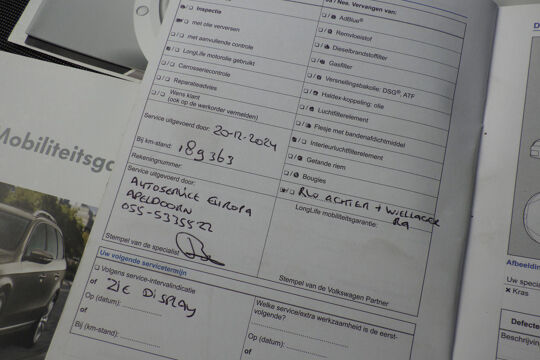 Ja / Nee. Vervangen van:
Inspectie
met olie verversen
met aanvullende controle
LongLife motorolie gebruikt
Carrosseriecontrole
Reparatieadvies
Wens klant
(ook op de werkorder vermelden)
Service uitgevoerd door: 20-12-2024
Bij km-stand: 189363
Rekeningnummer:
Service uitgevoerd door:
AUTOSERVICE EUROPA
APELDOORN
055-5335522
Stempel van de specialist
AdBlue®
Remvloeistof
Dieselbrandstoffilter
Gasfilter
Versnellingsbakolie: DSG®, ATF
Haldex-koppeling: olie
Luchtfilterelement
Flesje met bandenafdichtmiddel
Interieurluchtfilterelement
Getande riem
Bougies
ACHTER + WIELLAGER
RA
LongLife mobiliteitsgarantie:
Stempel van de Volkswagen Partner
Uw volgende servicetermijn
Volgens service-intervalindicatie
of ZIE DISPLAY
Op (datum):
of
Bij (km-stand):
Welke service/extra werkzaamheid is de eerst-
volgende?
Op (datum):
of
Mobiliteitsga
Afbeeldin
Uw specia
× Kras
Defecte
Beschrijvin